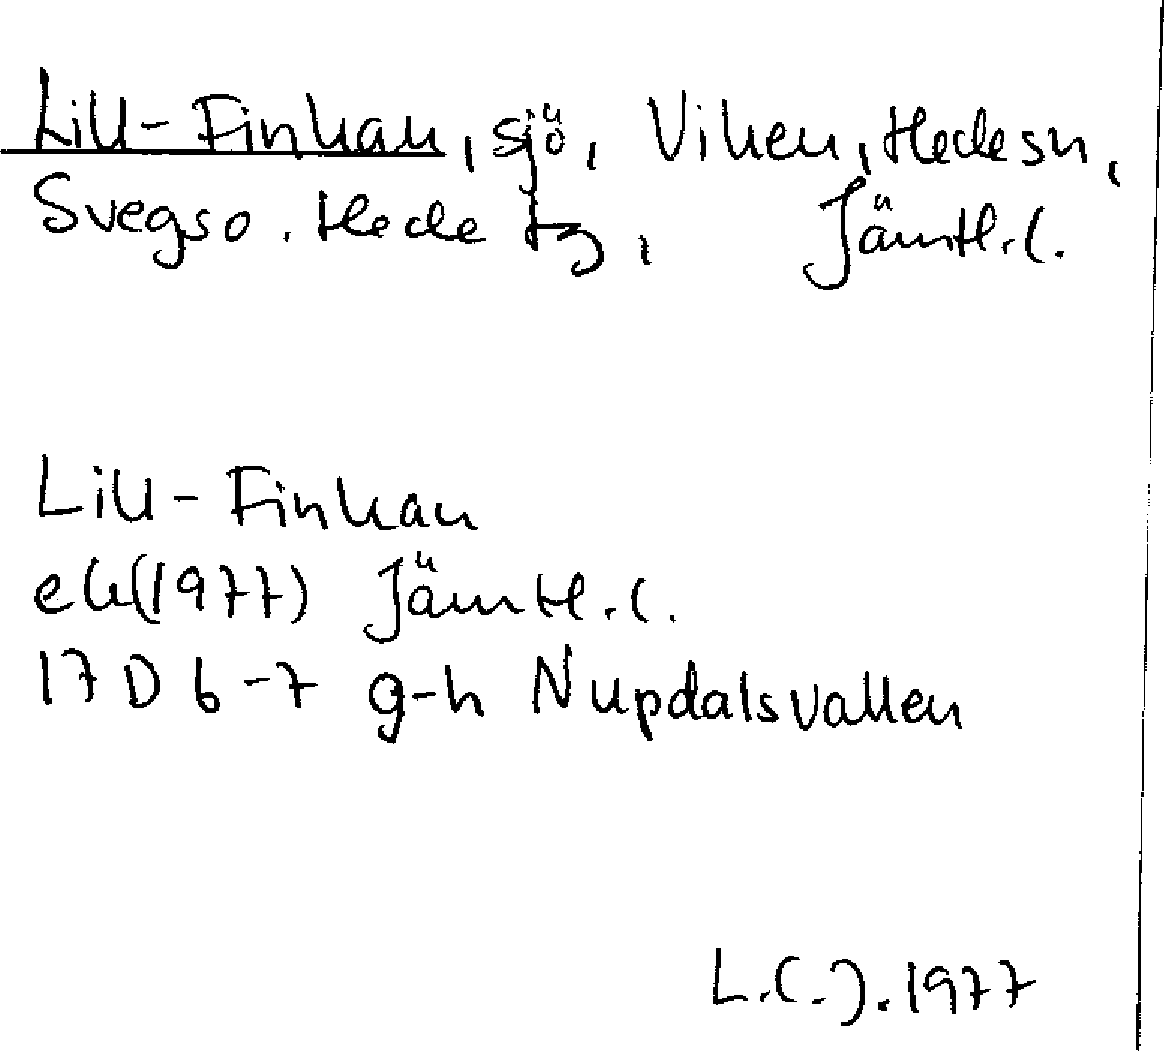 Lill-Finkan, sjö, Viken, Hede sn,
Svegs o. Hede tg, Jämtl. l.
Lill-Finkan
ek(1977) Jämtl. l.
17D 6-7 g-h Nupdalsvallen
L.C.J. 1977